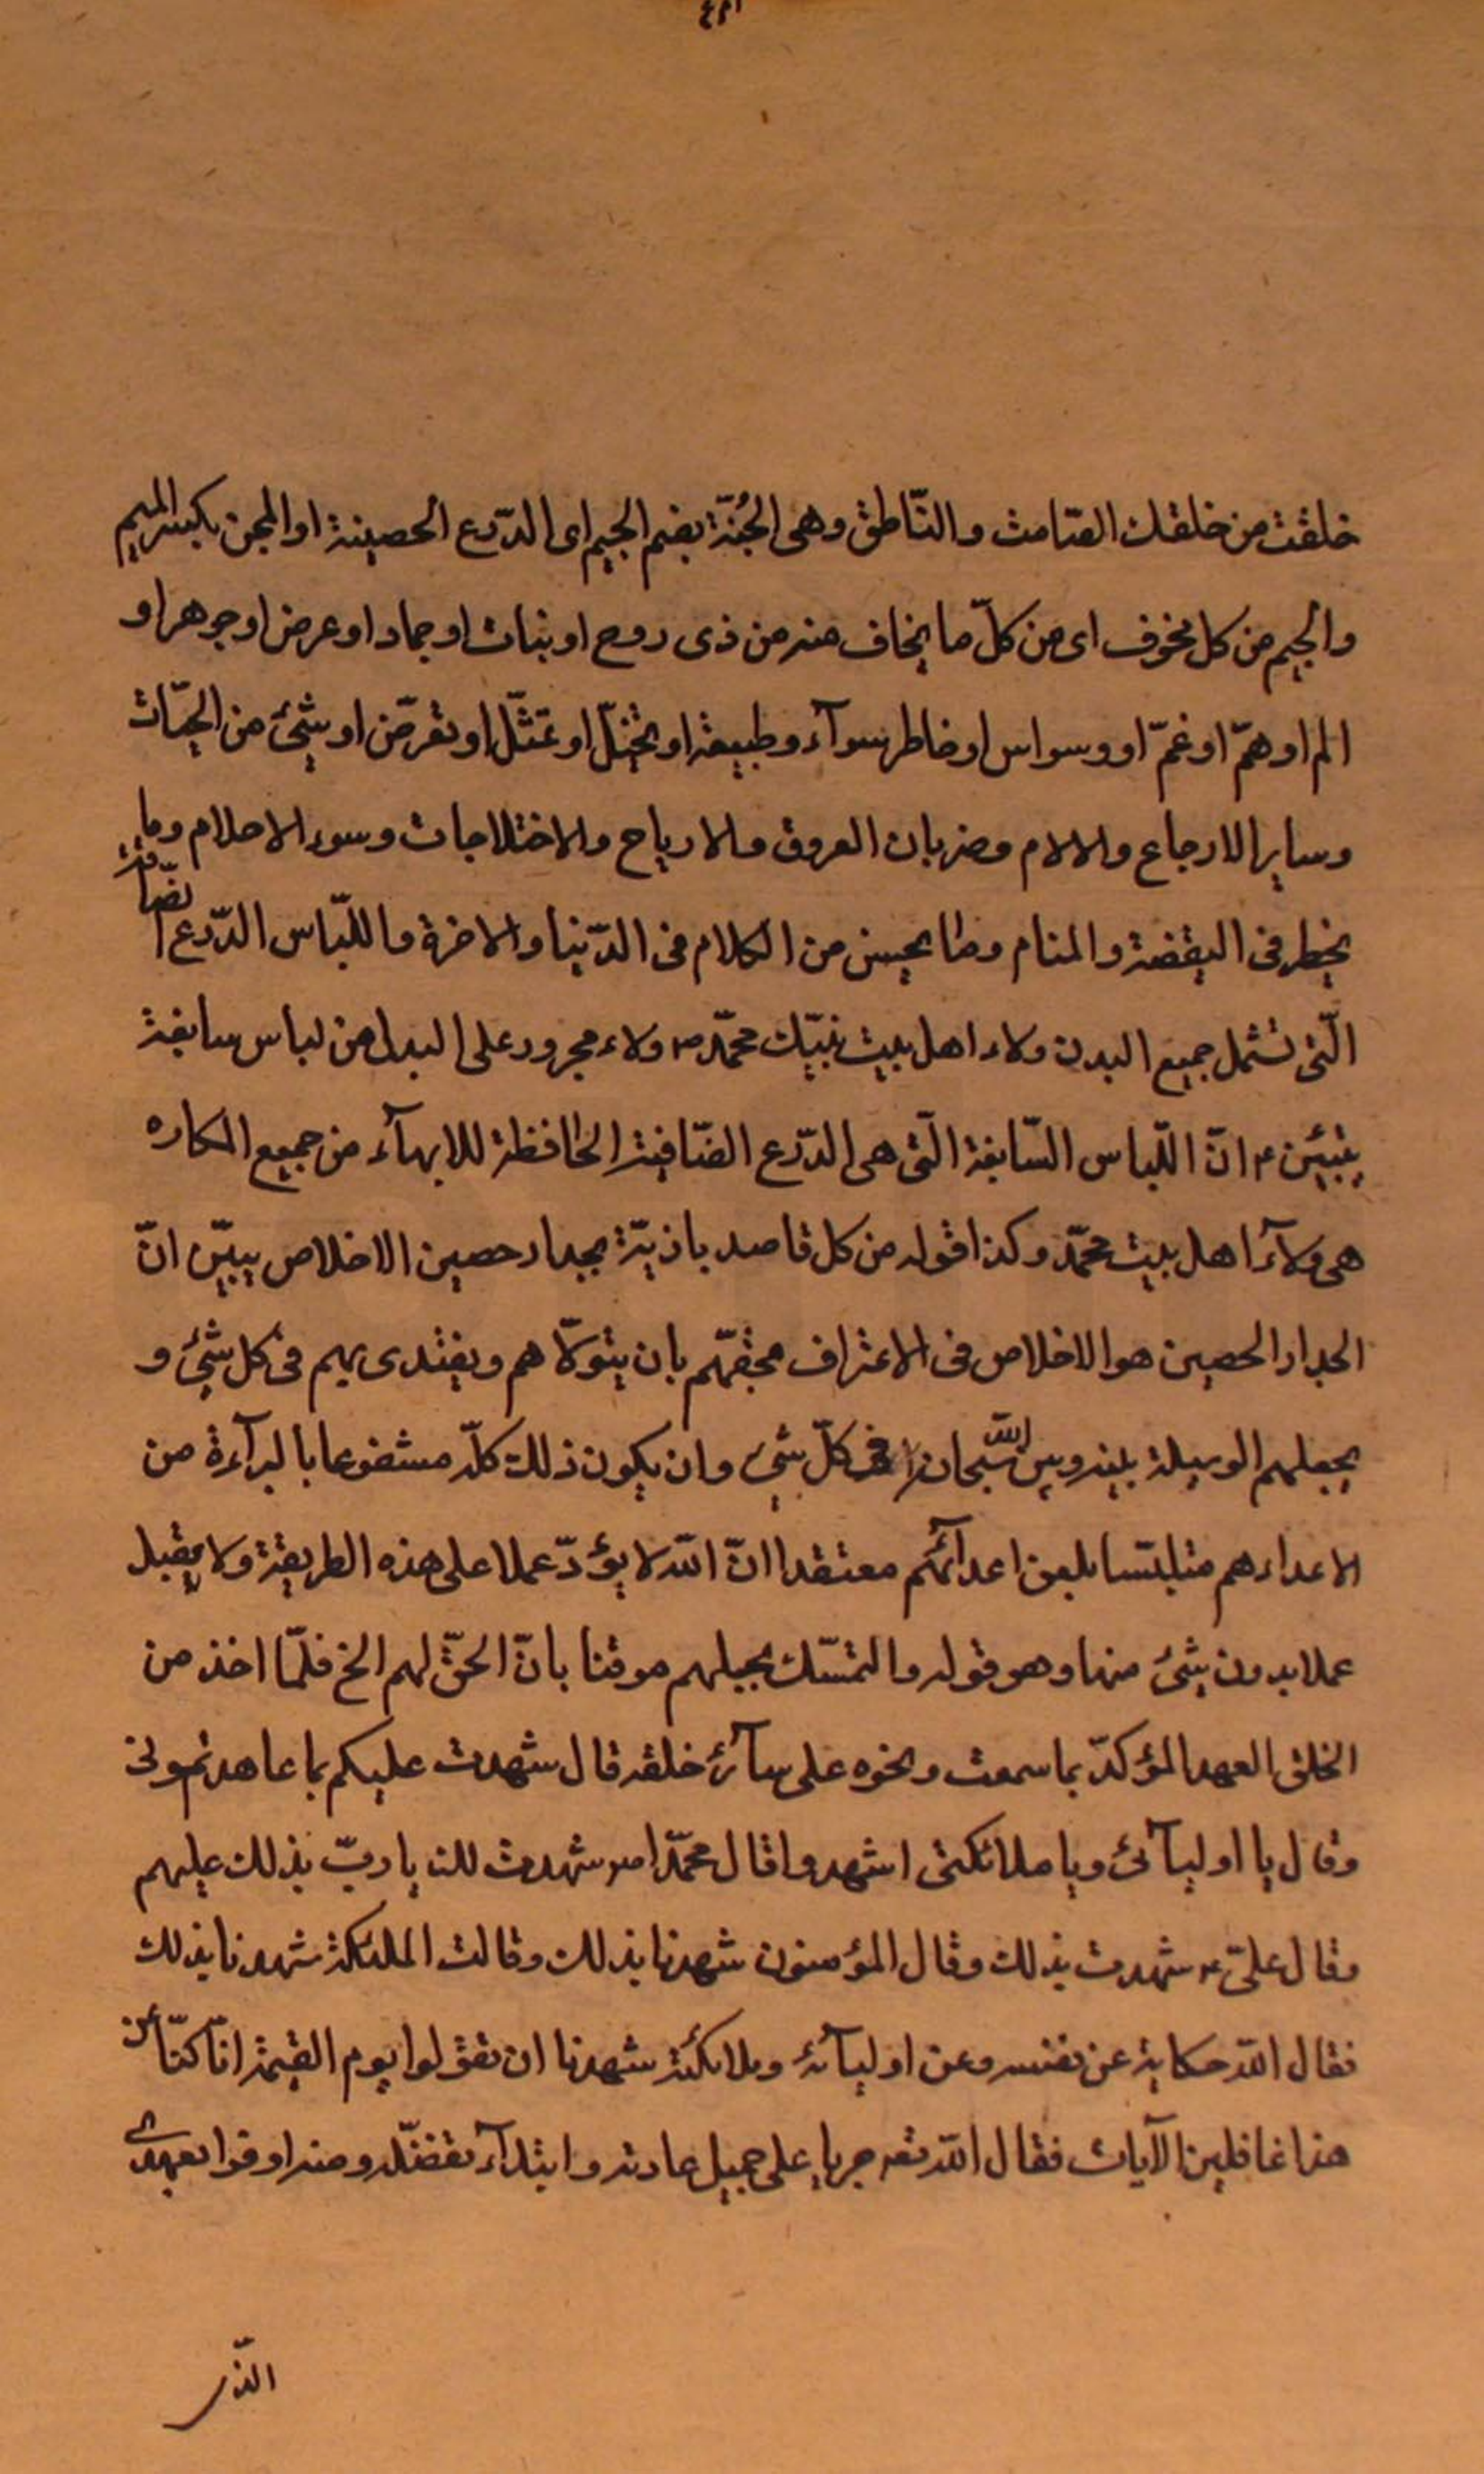 خلقت من خلقك الصّامت والنّاطق وهى الجُنّة بضم الجيم اى الدّرع الحصينة او المجن بكسر الميم
والجيم من كل مخوف اى من كلّ ما يخاف منه من ذى روح او بنات او جماد او عرض او جوهر او
الم او همّ او غمّ او وسواس او خاطر سوآء وطبيعة او تخيّل او تمثّل او تعرّض او شيئ من الحيّات
وساير الاوجاع والالام وضربان العروق والارياح والاختلاجات وسوء الاحلام وما
يخطر فى اليقضة والمنام وما يحسن من الكلام فى الدّنيا والاخرة واللّباس الدّرع الضّافية
الّتى تشمل جميع البدن ولاء اهل بيت نبيّك محمّد ص ولاء مجرور على البدل من لباس سابغة
يتبيّن ء انّ اللّباس السّابغة الّتى هى الدّرع الضّافية الحافظة للابهآء من جميع المكاره
هى ولآء اهل بيت محمّد وكذا قوله من كل قاصد باذيّة بجدار حصين الاخلاص يبيّن انّ
الجدار الحصين هو الاخلاص فى الاعتراف بحقّهم بان يتولّاهم ويقتدى بهم فى كل شيئ و
يجعلهم الوسيلة بينه وبين اللّه سبحانه فى كلّ شيئ وان يكون ذلك كلّه مشفوعا بالبرآءة من
الاعداءهم متلبّسا بلعن اعدآئهم معتقدا انّ اللّه لا يؤدّ عملا على هذه الطريقة ولا يقبل
عملا بدون شيئ منها وهو قوله والتمسّك بحبلهم موقنا بانّ الحقّ لهم الخ فلمّا اخذ من
الخلق العهد المؤكدّ بما سمعت ونحوه على سآئر خلقه قال شهدت عليكم بما عاهدتمونى
وقال يا اوليآئى ويا ملائكتى اشهدوا قال محمّد ص شهدت لك يا ربّ بذلك عليهم
وقال علىّ ع شهدت بذلك وقال المؤمنون شهدنا بذلك وقالت الملئكة شهدنا بذلك
فقال اللّه حكاية عن نفسه وعن اوليآئه وملائكته شهدنا ان تقولوا يوم القيمة انّا كنّا عن
هذا غافلين الآيات فقال اللّه تعه جريا على جميل عادته وابتدآء تفضّله ومنه اوفوا بعهدى
الذّر